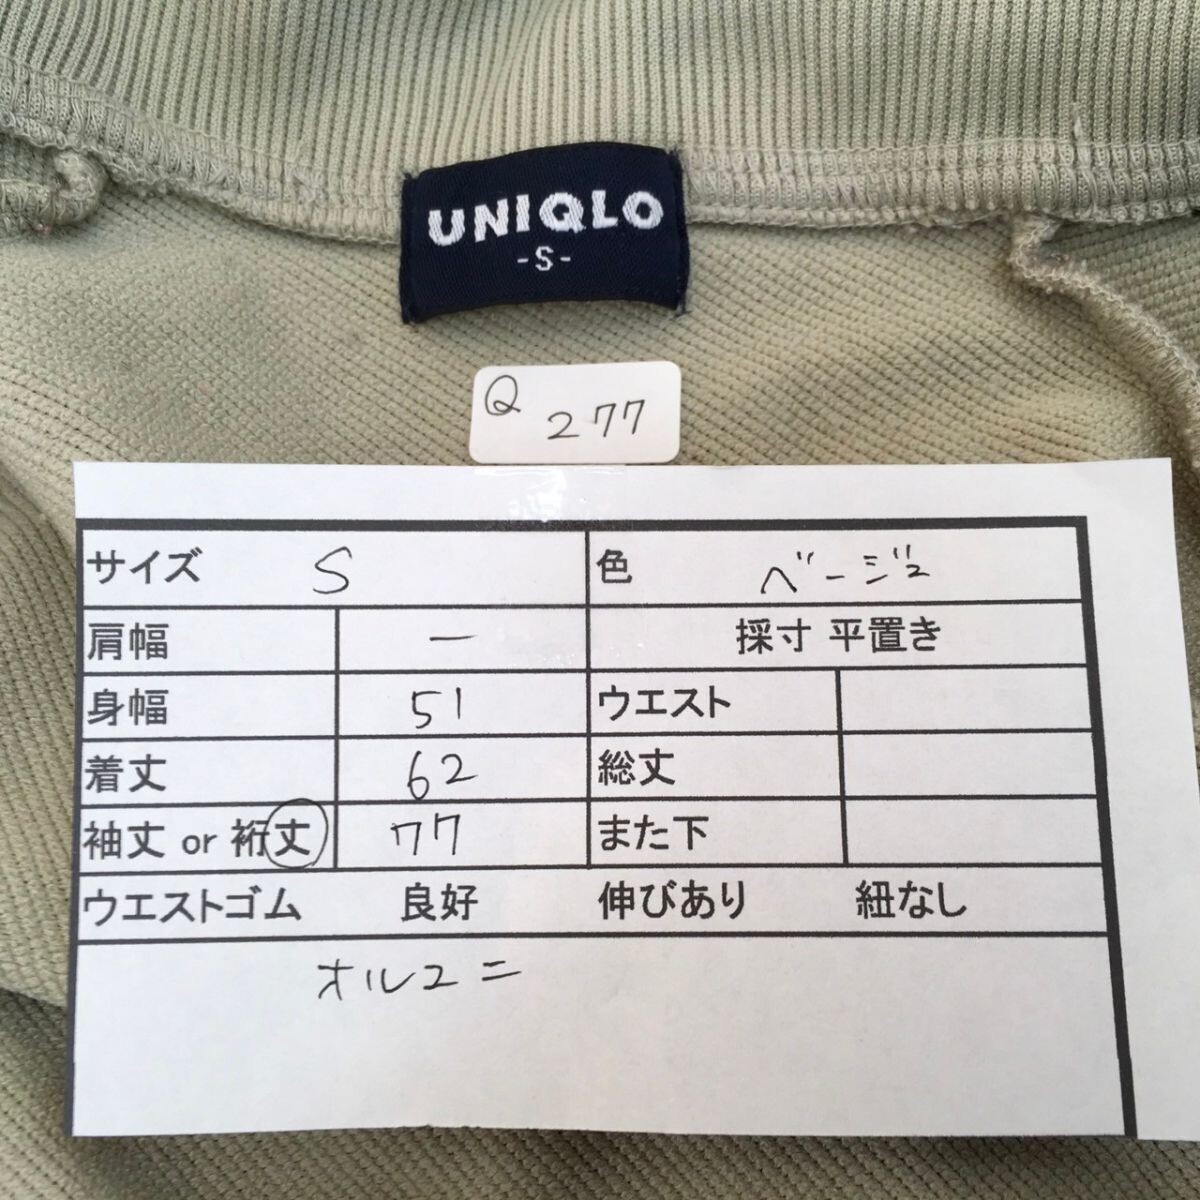 UNIQLO
-S-
Q 277
サイズ S 色 ベージュ
肩幅 ー 採寸 平置き
身幅 51 ウエスト
着丈 62 総丈
袖丈 or 裄丈 77 また下
ウエストゴム 良好 伸びあり 紐なし
オルユニ